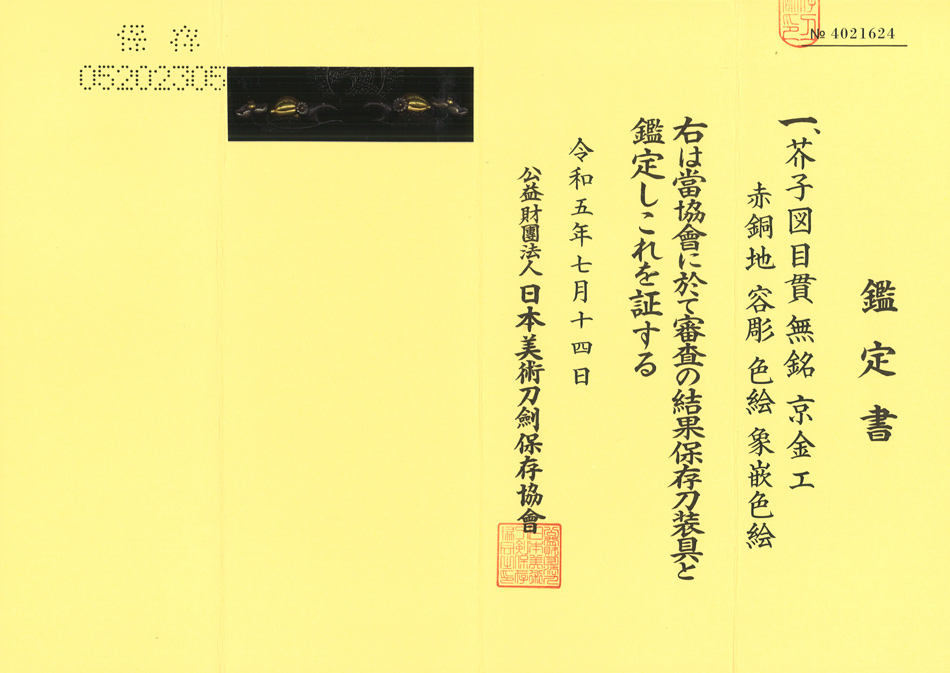 № 4021624
鑑定書
一、芥子図目貫 無銘 京金工
赤銅地 容彫 色絵 象嵌色絵
右は當協會に於て審査の結果保存刀装具と
鑑定しこれを証する
令和五年七月十四日
公益財團法人 日本美術刀劍保存協會
保存
05202305